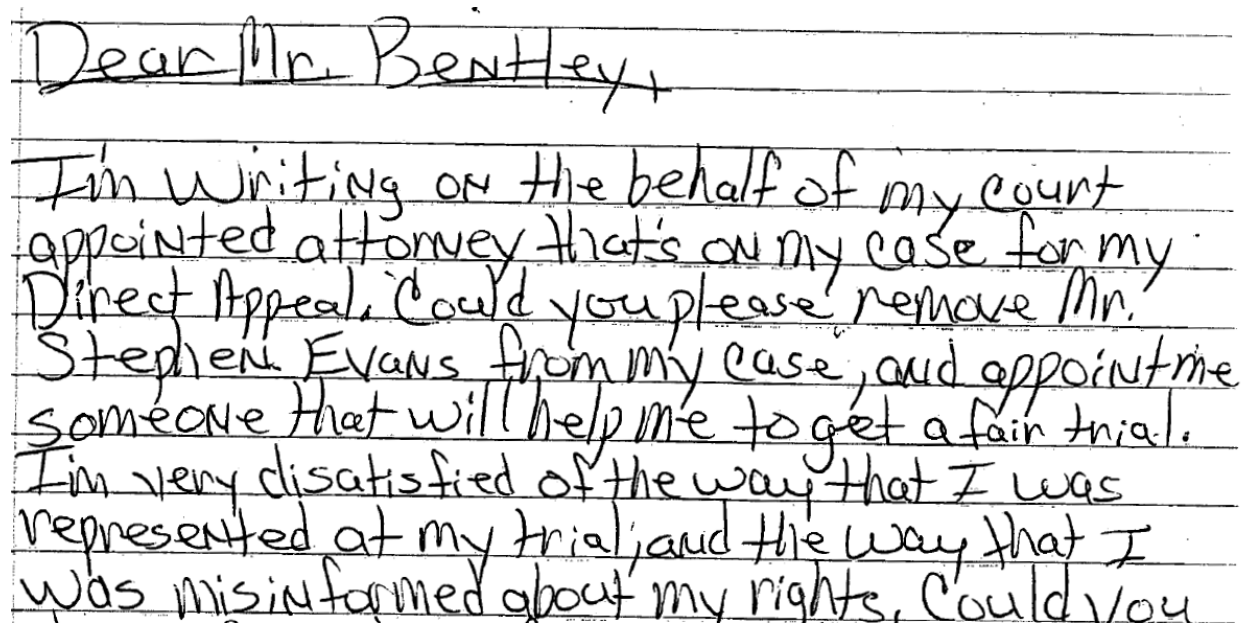 Dear Mr. Bentley,
I'm writing on the behalf of my court
appointed attorney that's on my case for my
Direct Appeal. Could you please remove Mr.
Stephen Evans from my case, and appoint me
someone that will help me to get a fair trial.
I'm very disatisfied of the way that I was
represented at my trial; and the way that I
was misinformed about my rights. Could you